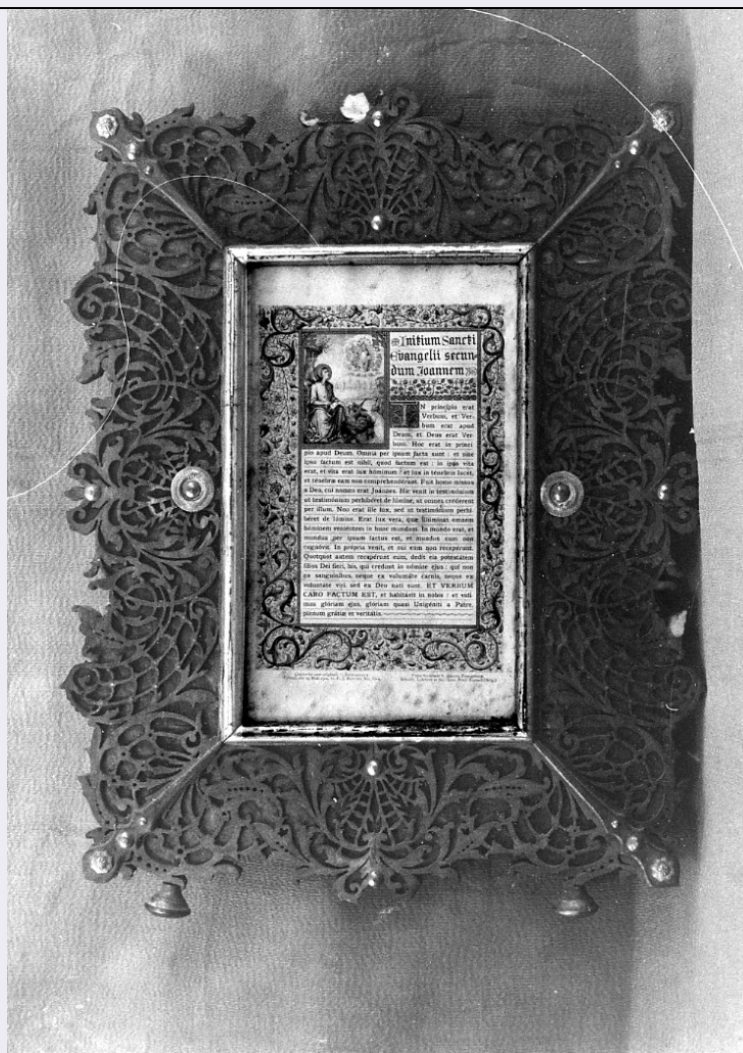 Initium Sancti
Evangelii secun-
dum Joannem
IN principio erat
Verbum, et Ver-
bum erat apud
Deum, et Deus erat Ver-
bum. Hoc erat in princí-
pio apud Deum. Omnia per ipsum facta sunt : et sine
ipso factum est nihil, quod factum est : in ipso vita
erat, et vita erat lux hóminum : et lux in ténebris lucet,
et ténebræ eam non comprehendérunt. Fuit homo missus
a Deo, cui nomen erat Joánnes. Hic venit in testimónium
ut testimónium perhibéret de lúmine, ut omnes créderent
per illum. Non erat ille lux, sed ut testimónium perhi-
béret de lúmine. Erat lux vera, quæ illúminat omnem
hóminem veniéntem in hunc mundum. In mundo erat, et
mundus per ipsum factus est, et mundus eum non
cognóvit. In própria venit, et sui eum non recepérunt.
Quotquot autem recepérunt eum, dedit eis potestátem
fílios Dei fíeri, his, qui credunt in nómine ejus : qui non
ex sanguínibus, neque ex voluntáte carnis, neque ex
voluntáte viri, sed ex Deo nati sunt. ET VERBUM
CARO FACTUM EST, et habitávit in nobis : et vídi-
mus glóriam ejus, glóriam quasi Unigéniti a Patre,
plenum grátiæ et veritátis.